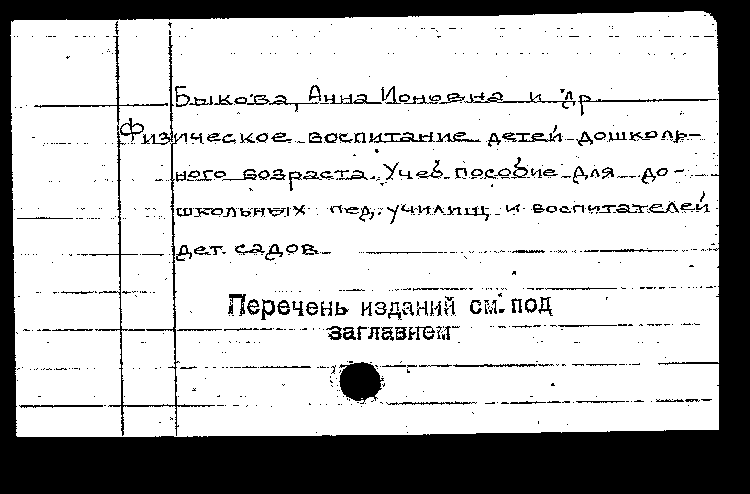 Быкова, Анна Ионовна и др.
Физическое воспитание детей дошколь-
ного возраста. Учеб. пособие для до-
школьных пед. училищ и воспитателей
дет. садов.
Перечень изданий см. под
заглавием